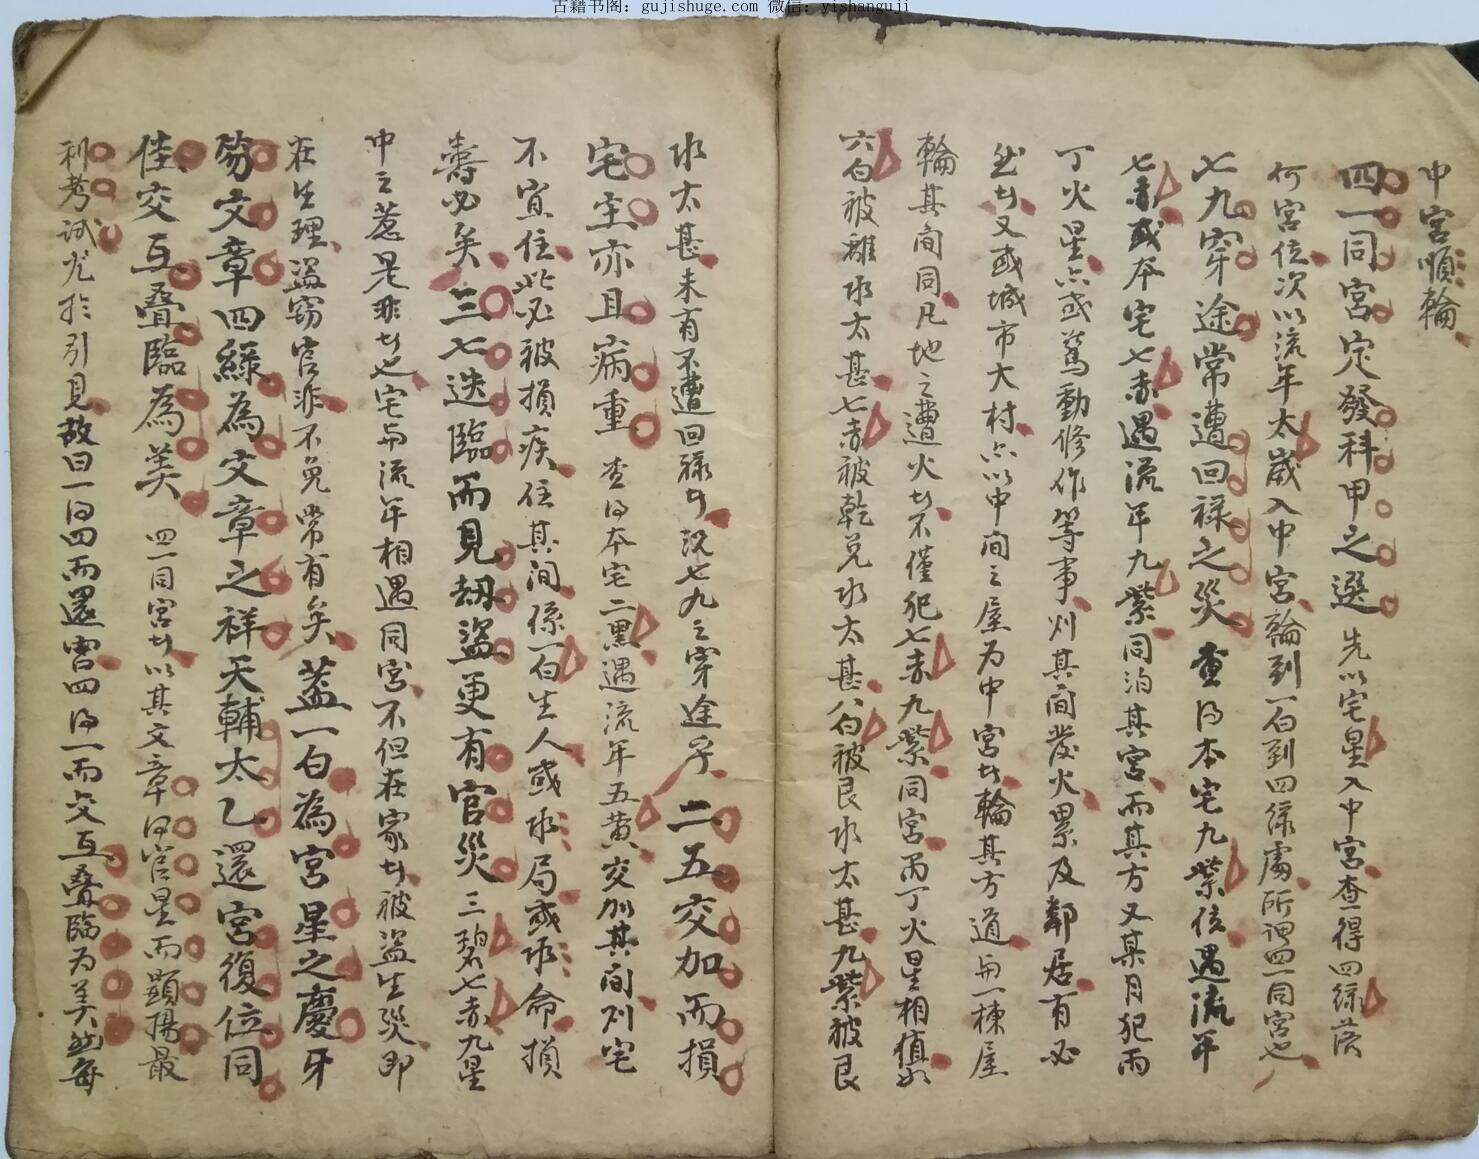 古籍书阁：gujishuge.com 微信：yishanguji
中宮順輪
四一同宮定發科甲之選 先以宅星入中宮查得四綠落
何宮位次以流年太歲入中宮輪到一白到四綠處所謂四一同宮也
七九穿途常遭回祿之災 查得本宅九紫位遇流年
七赤或本宅七赤遇流年九紫同泊其宮而其方又某月犯丙
丁火星亦或驚動修作等事則其間發火累及鄰居有必
然者又或城市大村亦以中間之屋为中宮者輪其方道与一棟屋
輪其間同凡地之遭火者不僅犯七赤九紫同宮丙丁火星相值如
六白被離水太甚七赤被乾兌水太甚八白被艮水太甚九紫被艮
水太甚未有不遭回祿者況七九之穿途乎 二五交加而損
宅主亦且病重 查得本宅二黑遇流年五黄交加其间刈宅
不宜住此必被損疾住其间係一白生人或水局或水命損
壽必矣三七迭臨而見劫盜更有官災 三碧七赤九星
中之惹是非者也宅与流年相遇同宮不但在家者被盜生災即
在生理盜窃官非不免常有矣 蓋一白為官星之慶牙
笏文章四綠為文章之祥天輔太乙還宮復位同
佳交互叠臨為美 四一同宮者以其文章得官星而顯揚最
利考試尤於引見故曰一得四而還宮四得一而交互叠臨为美然每